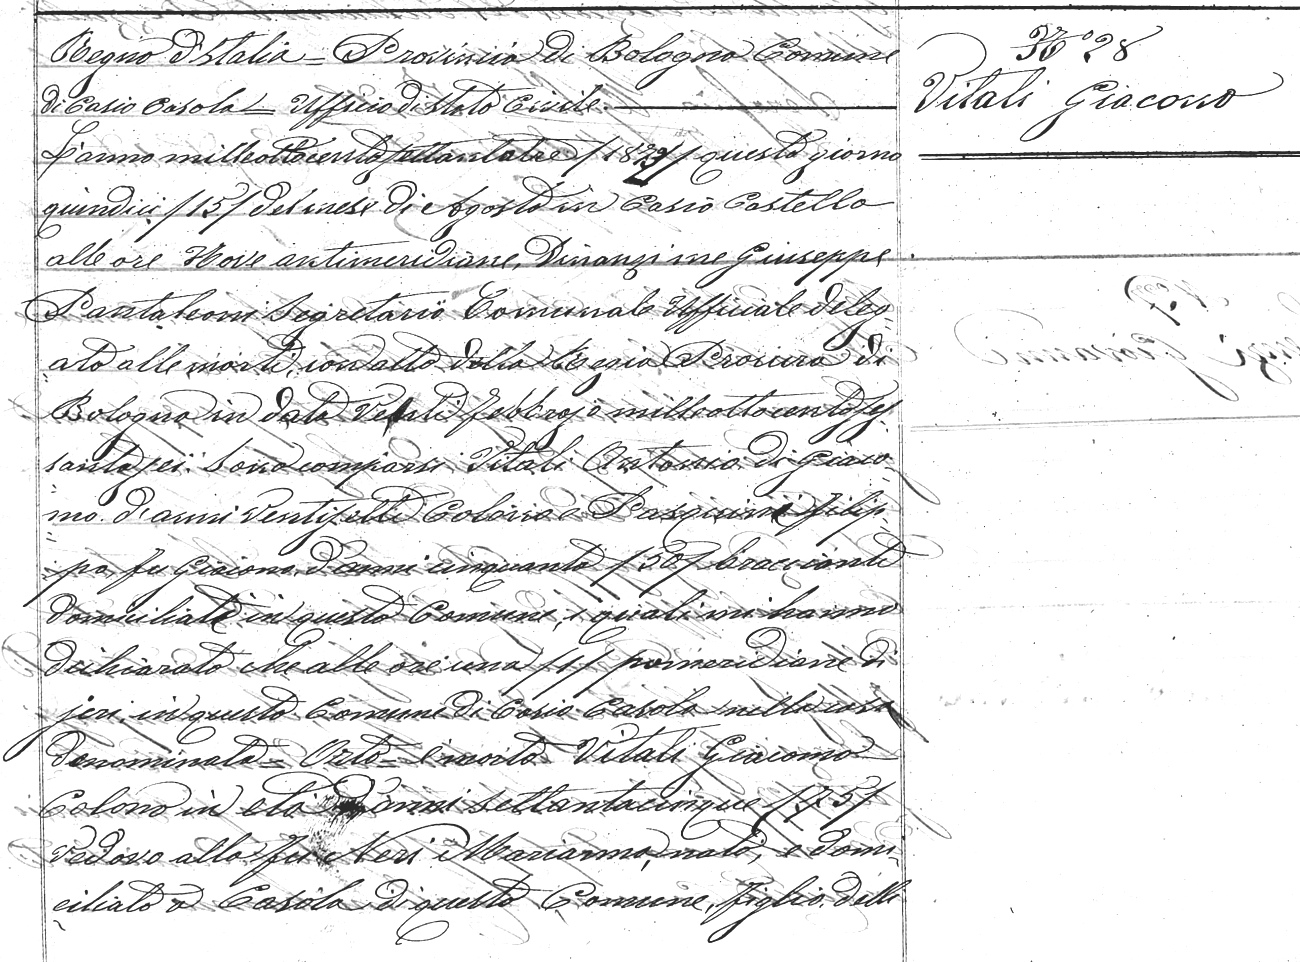 Regno d'Italia = Provincia di Bologna Comune
di Casio Casola = Ufficio di Stato Civile.
L'anno milleottocentosettantatre /1873/ questo giorno
quindici /15/ del mese di Agosto in Casio Castello
alle ore Nove antimeridiane, Dinanzi me Giuseppe
Pantaleoni Segretario Comunale Ufficiale deleg
ato alle morti, con atto della Regia Procura di
Bologna in data Venti febbrajo milleottocentoses
santasei. Sono comparsi Vitali Antonio di Giaco
mo d'anni Ventisette Colono e Pasquini Filip
po, fu Giacomo d'anni cinquanta /50/ bracciante
domiciliati in questo Comune, i quali mi hanno
dichiarato che alle ore una /1/ pomeridiane di
jeri, in questo Comune di Casio Casola nella casa
denominata = Orto = è morto Vitali Giacomo
Colono in età d'anni settantacinque /75/
Vedovo alla fu Neri Marianna, nato, e domi
ciliato a Casola di questo Comune, figlio delli
N° 28
Vitali Giacomo